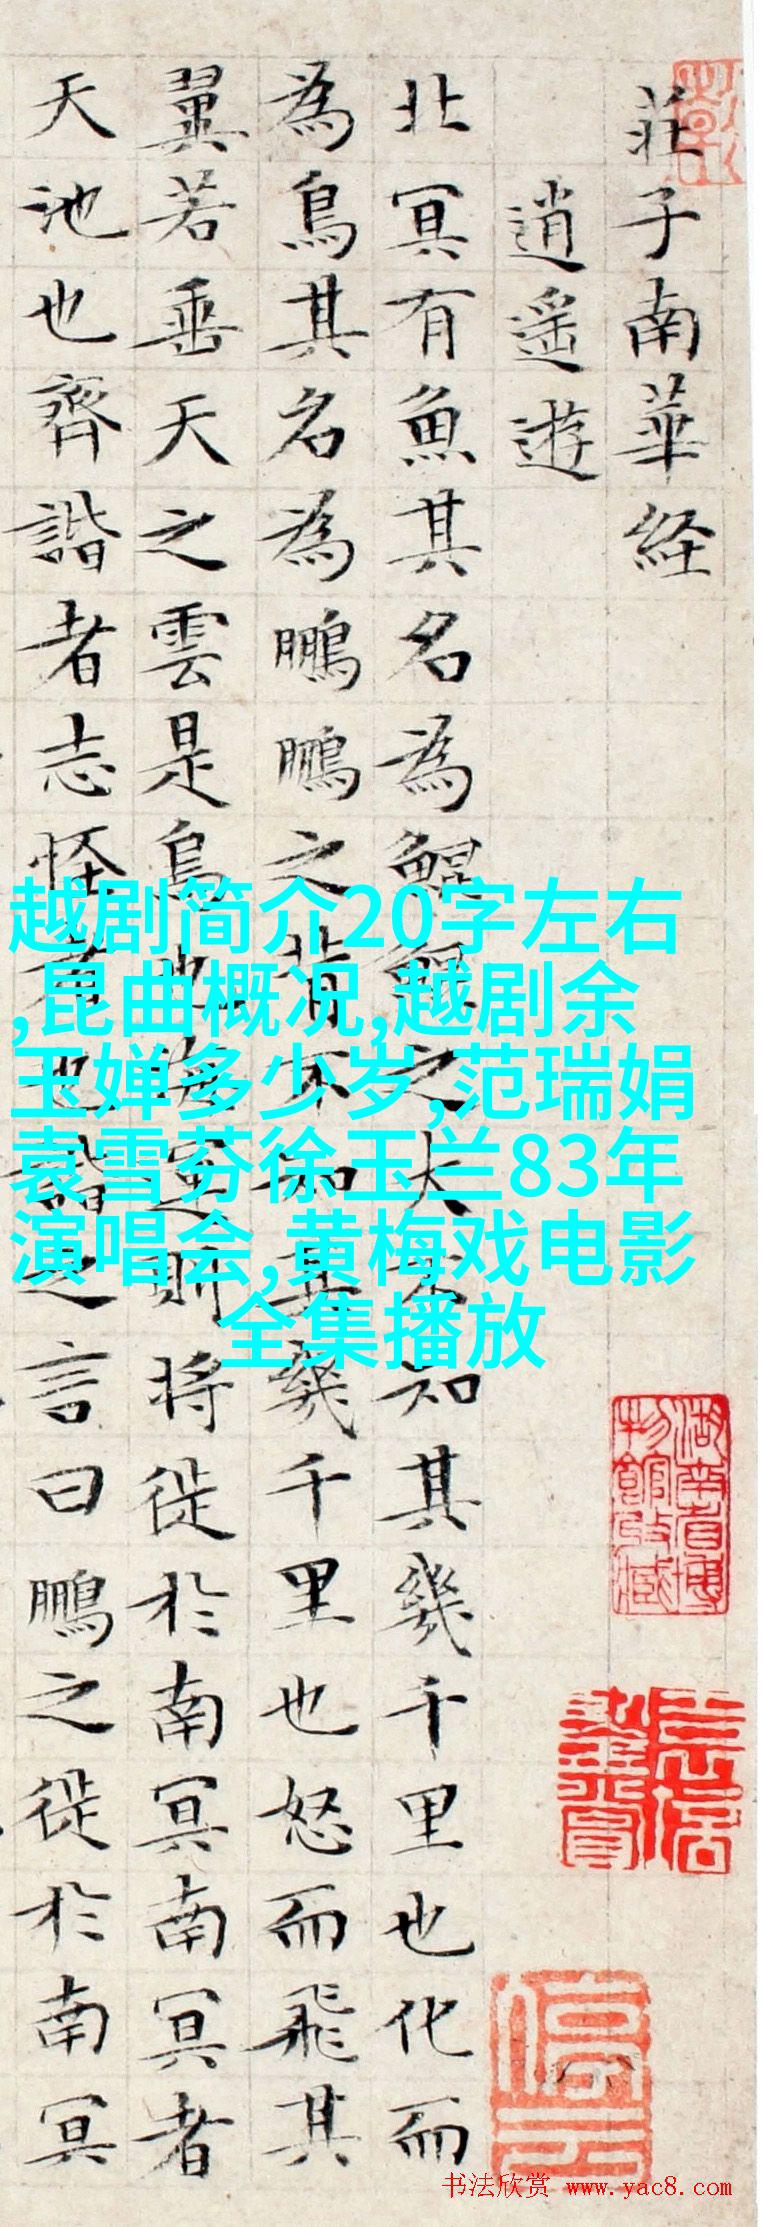 莊子南華経
逍遙遊
北冥有魚其名為鯤鯤之大不知其幾千里也化而
為鳥其名為鵬鵬之背不知其幾千里也怒而飛其
翼若垂天之雲是鳥也海運則將徙於南冥南冥者
天池也齊諧者志怪者也諧之言曰鵬之徙於南冥
越剧简介20字左右
,昆曲概况,越剧余
玉婵多少岁,范瑞娟
袁雪芬徐玉兰83年
演唱会,黄梅戏电影
全集播放
湖南省博
物館收藏
书法欣赏 www.yac8.com